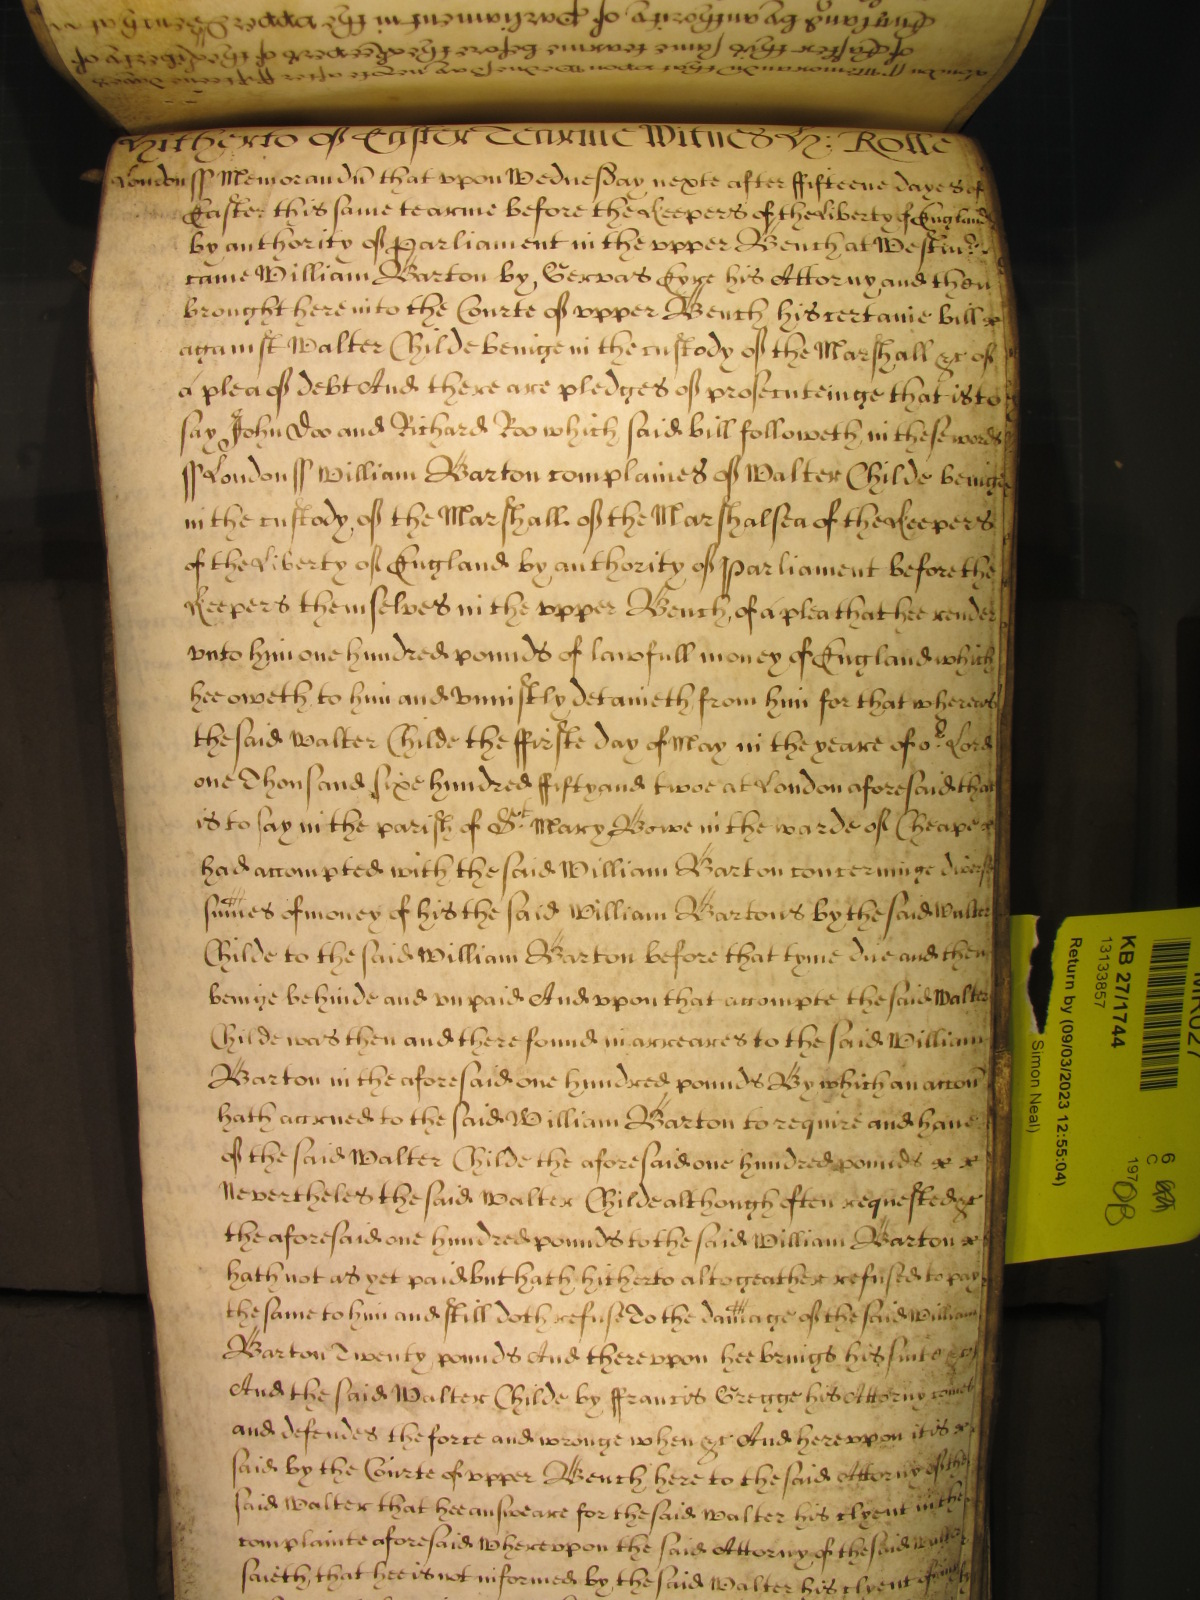 hitherto of Easter Tearme Witnes H: Rolle
London ss Memorandū that vpon Wednesday nexte after ffifteene dayes of
Easter this same tearme before the Keepers of the Liberty of England
by authority of Parliament in the vpper Bench at Westm̄
came William Barton by Gervas Eyre his Attorny and then
brought here into the Courte of vpper Bench his certaine bill
against Walter Childe beinge in the custody of the Marshall &c of
a plea of debt And there are pledges of prosecuteinge that is to
say John Doo and Richard Roo which said bill followeth in these words
ss London ss William Barton complaines of Walter Childe beinge
in the custody of the Marshall of the Marshalsea of the Keepers
of the Liberty of England by authority of Parliament before the
Keepers themselves in the vpper Bench of a plea that hee render
vnto him one hundred pounds of lawfull money of England which
hee oweth to him and vniustly detaineth from him for that whereas
the said Walter Childe the ffirste day of May in the yeare of oʳ Lord
one Thousand sixe hundred ffifty and twoe at London aforesaid that
is to say in the parish of Sᵗ Mary Bowe in the warde of Cheape
had accompted with the said William Barton concerninge diverse
sumes of money of his the said William Bartons by the said Walter
Childe to the said William Barton before that tyme due and then
beinge behinde and vnpaid And vpon that accompte the said Walter
Childe was then and there found in arreares to the said William
Barton in the aforesaid one hundred pounds By which an accoñ
hath accrued to the said William Barton to require and have
of the said Walter Childe the aforesaid one hundred pounds
Nevertheles the said Walter Childe although often requested &c
the aforesaid one hundred pounds to the said William Barton
hath not as yet paid but hath hitherto altogeather refused to pay
the same to him and still doth refuse To the damage of the said William
Barton Twenty pounds And therevpon hee brings his suite &c
And the said Walter Childe by ffrancis Gregge his Attorny comes
and defendes the force and wronge when &c And herevpon it is
said by the Courte of vpper Bench here to the said Attorny of the
said Walter that hee answeare for the said Walter his clyent in the
complainte aforesaid wherevpon the said Attorny of the said Walter
saieth that hee is not informed by the said Walter his clyent of
KB 27/1744
13133857
Return by (09/03/2023 12:55:04)
Simon Neal)
6
C
197